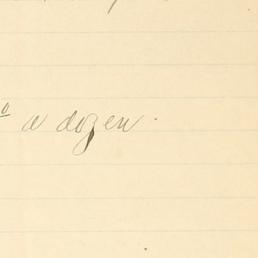 a dozen.